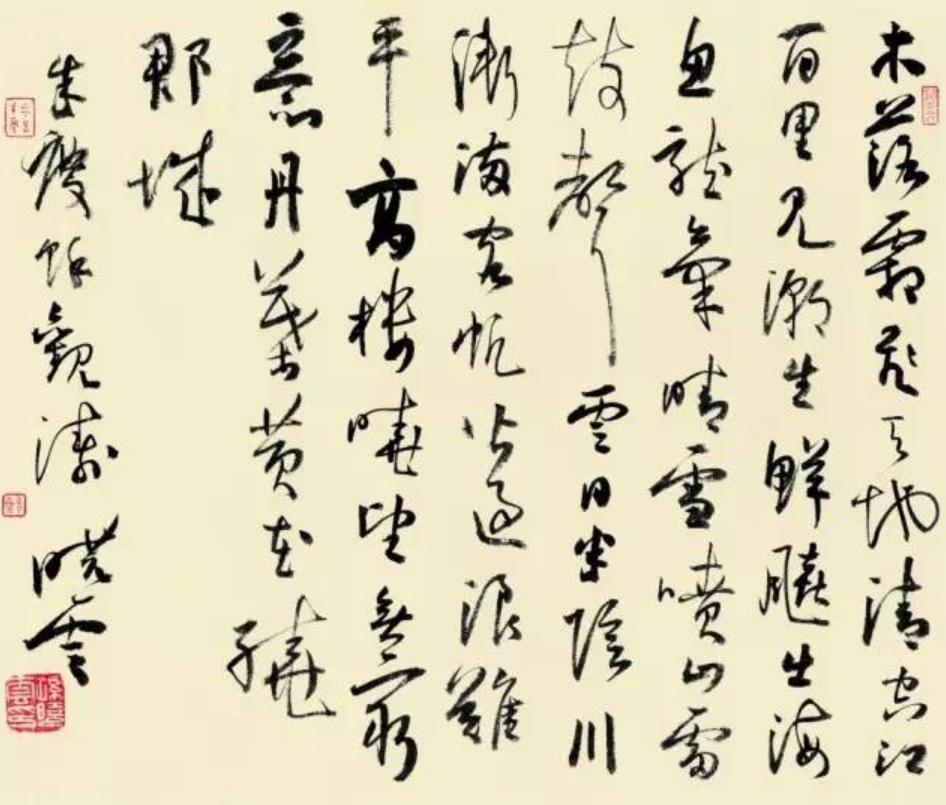 木落霜飛天地清空江
百里見潮生鮮飆出海
魚龍氣晴雪噴山雷
鼓聲雲日半陰川
漸滿客帆皆過浪難
平高樓曉望無窮
意丹葉黃花繞
郡城
朱慶餘觀濤 曉雲
孫曉雲印